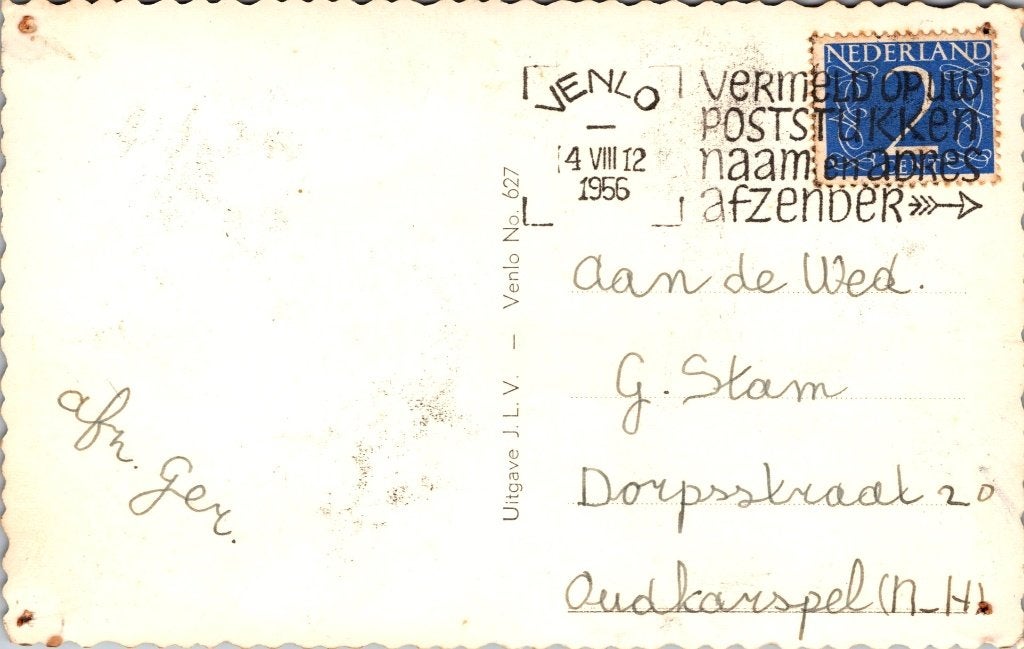 NEDERLAND
2
VENLO
14 VIII 12
1956
VERMELD OP UW
POSTSTUKKEN
naam en adres
afzender
Uitgave J. L. V. — Venlo No. 627
Aan de Wed.
G. Stam
Dorpsstraat 20
Oudkarspel (N-H)
afz. Ger.